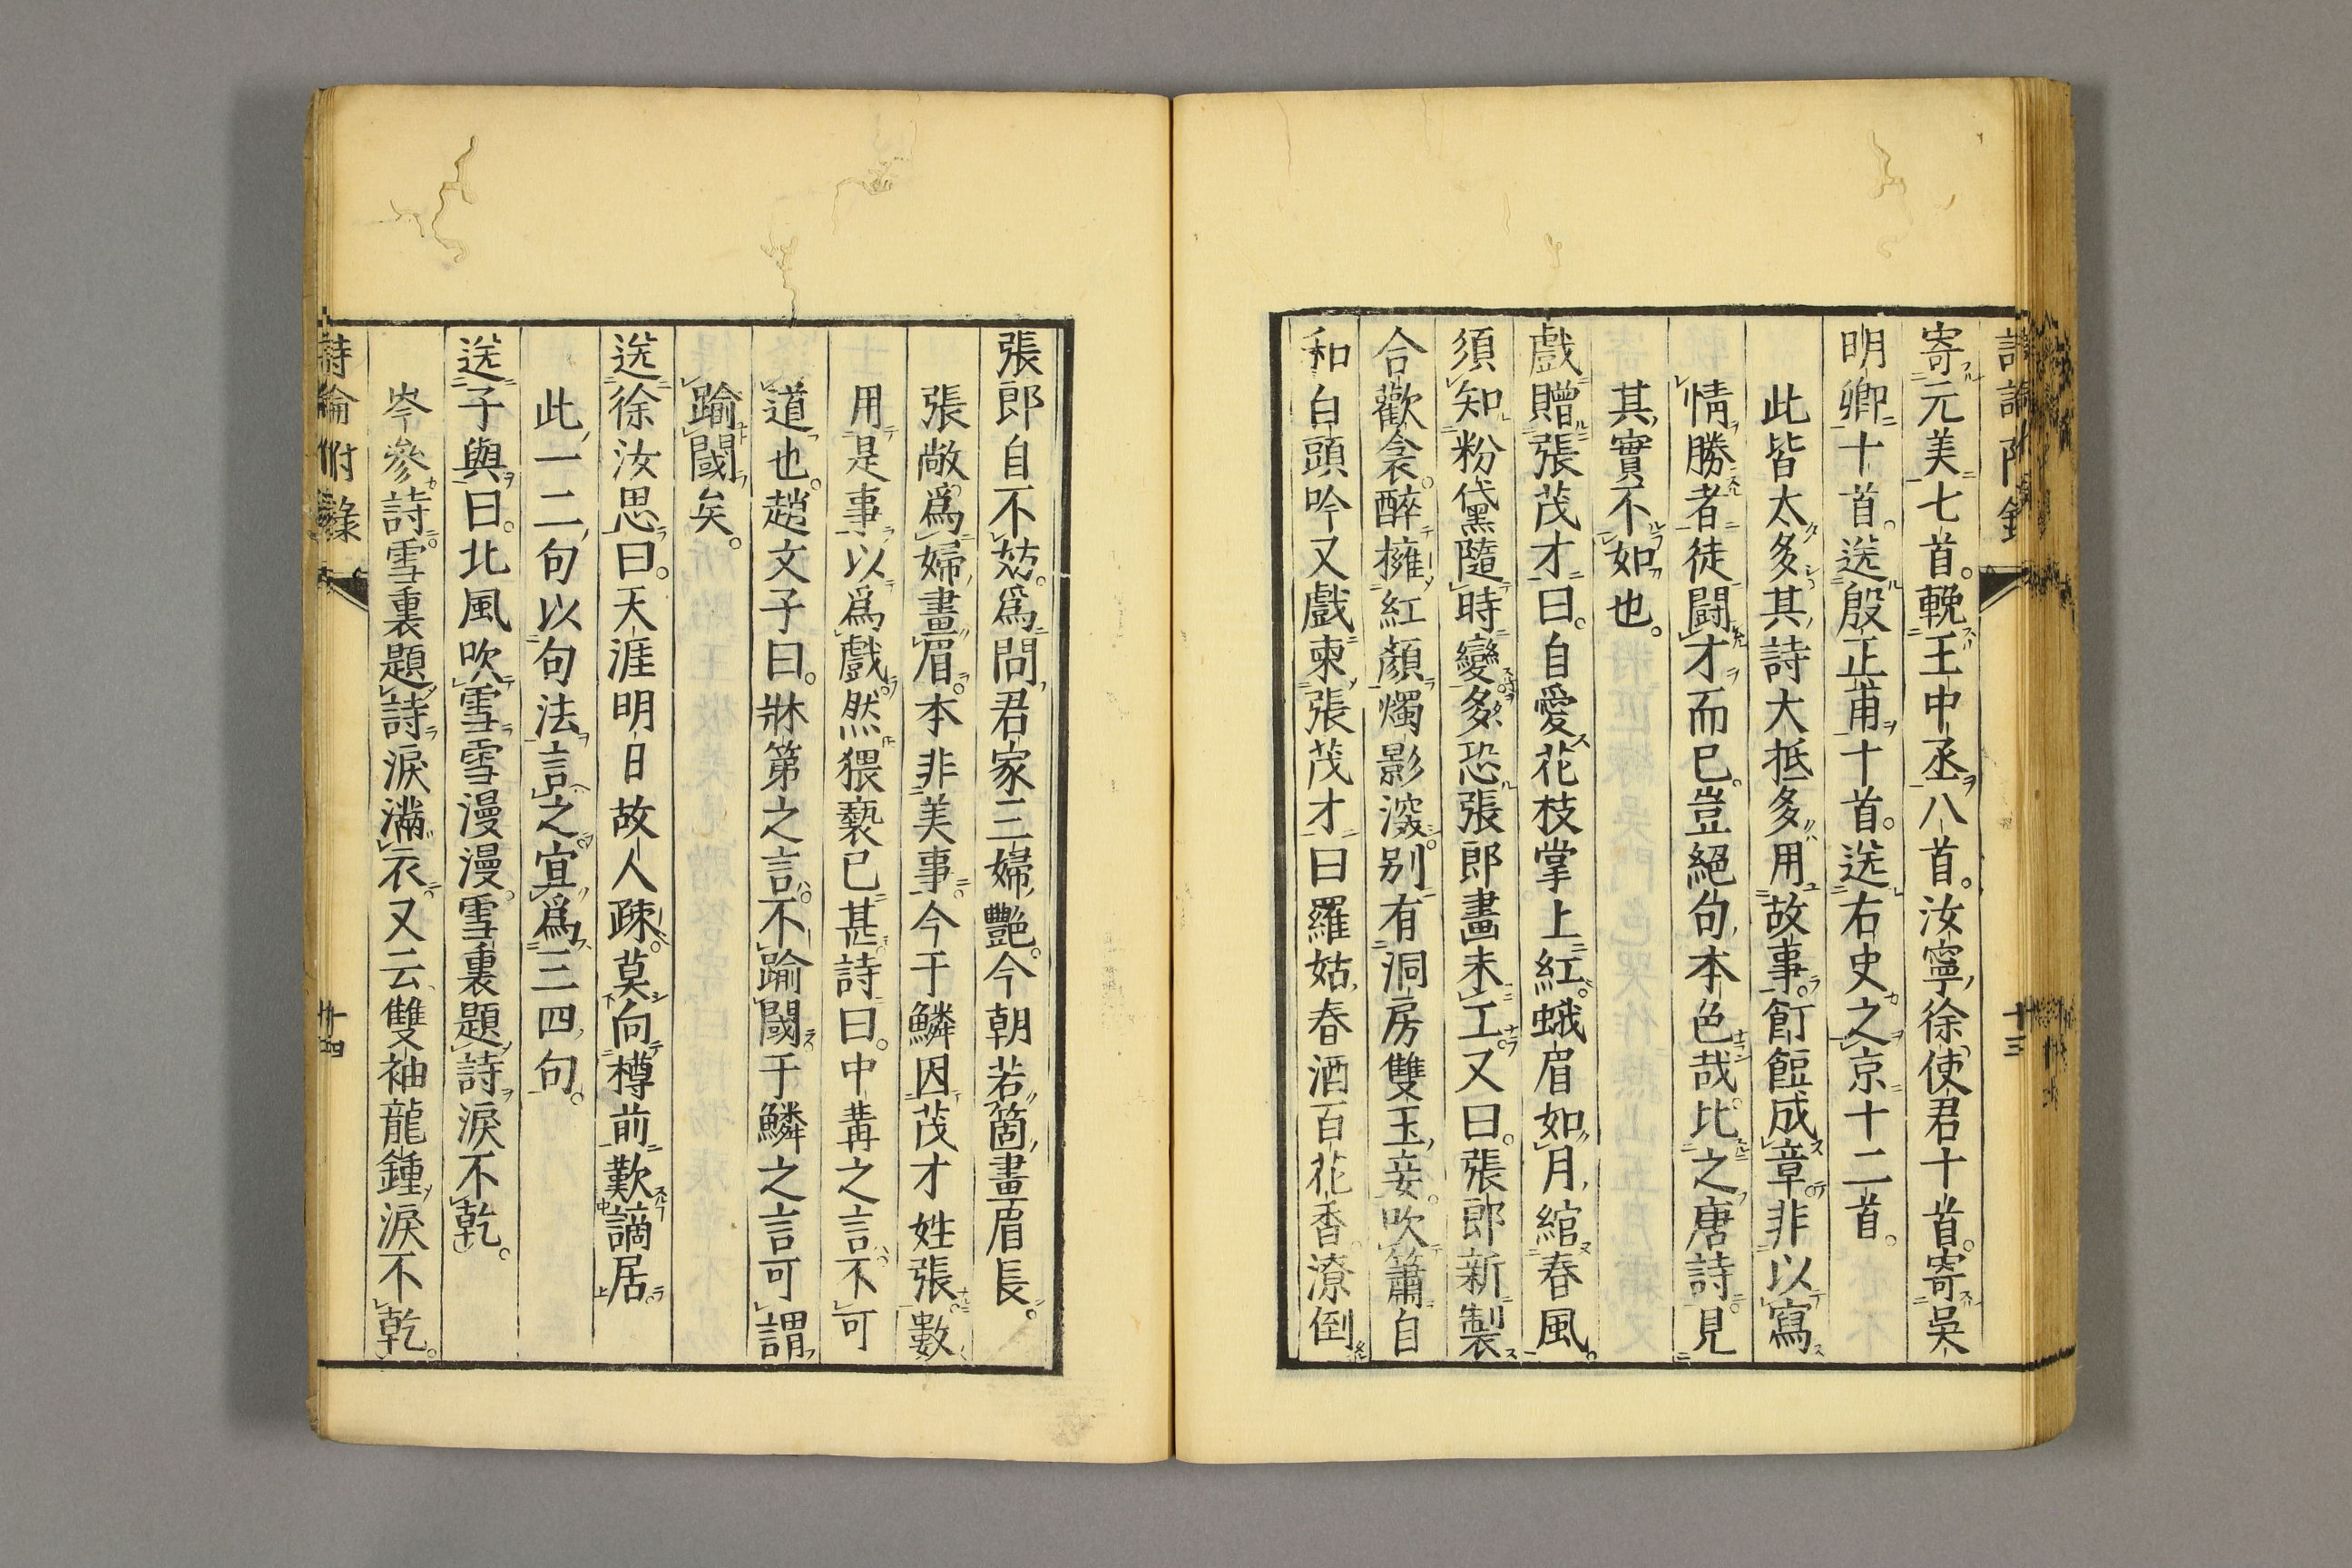 詩論附錄
十三
寄元美七首。輓王中丞八首。汝寧徐使君十首。寄吳
明卿十首。送殷正甫十首。送右史之京十二首。
此皆太多。其詩大抵多用故事。飣餖成章。非以寫
情勝者。徒鬪才而已。豈絕句本色哉。比之唐詩。見
其實不如也。
戲贈張茂才曰。自愛花枝掌上紅。蛾眉如月綰春風。
須知粉黛隨時變。多恐張郎畫未工。又曰。張郎新製
合歡衾。醉擁紅顏燭影深。別有洞房雙玉妾。吹簫自
和白頭吟又戲柬張茂才曰羅姑春酒百花香潦倒
張郎自不妨。爲問君家三婦艷。今朝若箇畫眉長。
張敞爲婦畫眉。本非美事。今于鱗因茂才姓張。數
用是事以爲戲。然猥褻已甚。詩曰。中冓之言不可
道也。趙文子曰。牀第之言。不踰閾。于鱗之言可謂
踰閾矣。
送徐汝思曰。天涯明日故人疎。莫向樽前歎謫居。
此一二句以句法言之。宜爲三四句。
送子與曰。北風吹雪雪漫漫。雪裏題詩淚不乾。
岑參詩。雪裏題詩淚滿衣。又云雙袖龍鍾淚不乾。
詩論附錄
十四